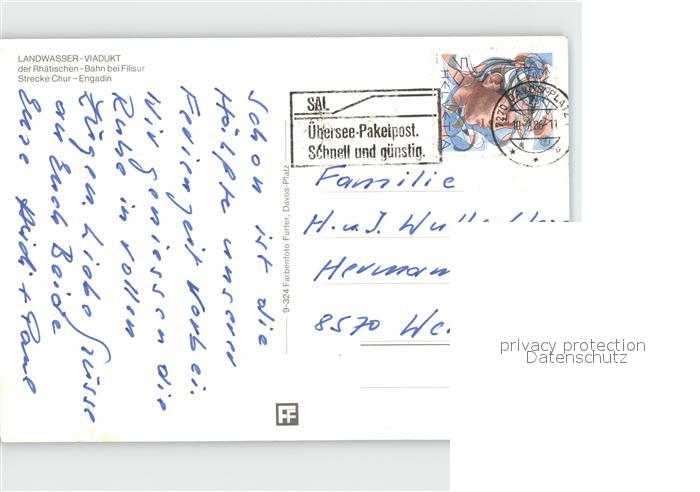 LANDWASSER-VIADUKT
der Rhätischen-Bahn bei Filisur
Strecke Chur-Engadin
Schon ist die
Hälfte unserer
Ferienzeit vorbei.
Wir geniessen die
Ruhe in vollen
Zügen. Liebe Grüsse
an Euch Beide
Eure Heidi +
9-324 Farbenfoto Furter, Davos-Platz
SAL
Übersee-Paketpost.
Schnell und günstig.
HELVETIA
7270 DAVOS PLATZ
Familie
H. u. J.
Herman
8570 We
FF
privacy protection
Datenschutz